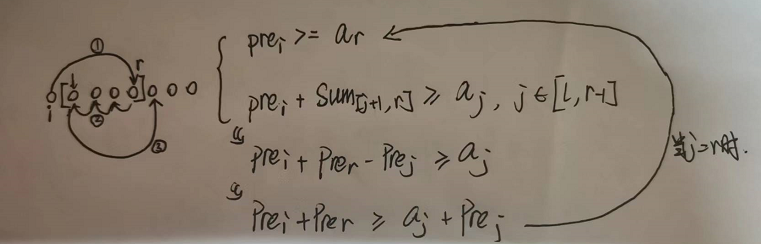 ① r
i [ ] ② ③
pre_i >= a_r
pre_i + Sum_[j+1,r] ≥ a_j, j∈[l,r-1]
Pre_i + Pre_r - Pre_j ≥ a_j
Pre_i + Pre_r ≥ a_j + Pre_j
当j=r时.